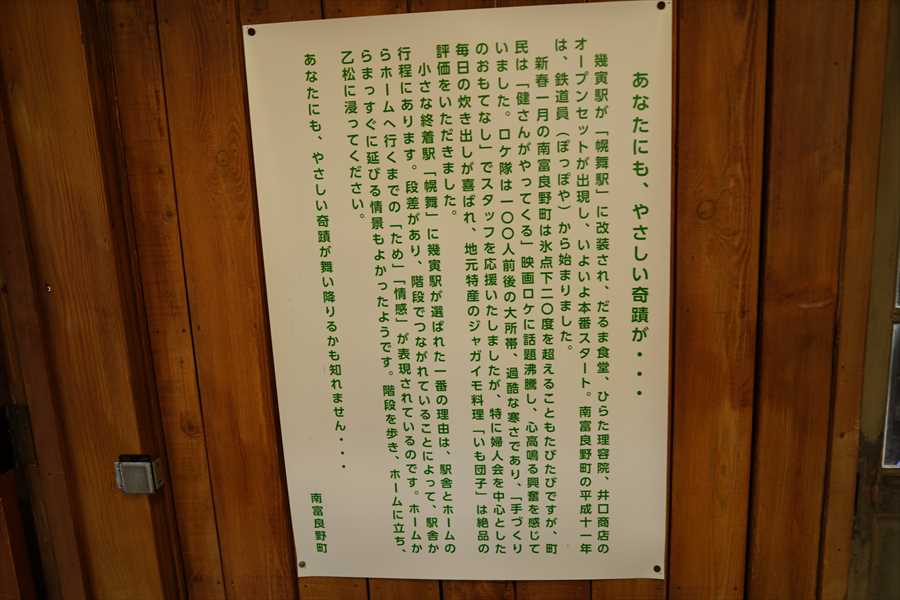 あなたにも、やさしい奇蹟が・・・
幾寅駅が「幌舞駅」に改装され、だるま食堂、ひらた理容院、井口商店の
オープンセットが出現し、いよいよ本番スタート。南富良野町の平成十一年
は、鉄道員（ぽっぽや）から始まりました。
新春一月の南富良野町は氷点下二〇度を超えることもたびたびですが、町
民は「健さんがやってくる」映画ロケに話題沸騰し、心高鳴る興奮を感じて
いました。ロケ隊は一〇〇人前後の大所帯、過酷な寒さであり、「手づくり
のおもてなし」でスタッフを応援いたしましたが、特に婦人会を中心とした
毎日の炊き出しが喜ばれ、地元特産のジャガイモ料理「いも団子」は絶品の
評価をいただきました。
小さな終着駅「幌舞」に幾寅駅が選ばれた一番の理由は、駅舎とホームの
行程にあります。段差があり、階段でつながれていることによって、駅舎か
らホームへ行くまでの「ため」「情感」が表現されているのです。ホームか
らまっすぐに延びる情景もよかったようです。階段を歩き、ホームに立ち、
乙松に浸ってください。
あなたにも、やさしい奇蹟が舞い降りるかも知れません・・・
南富良野町